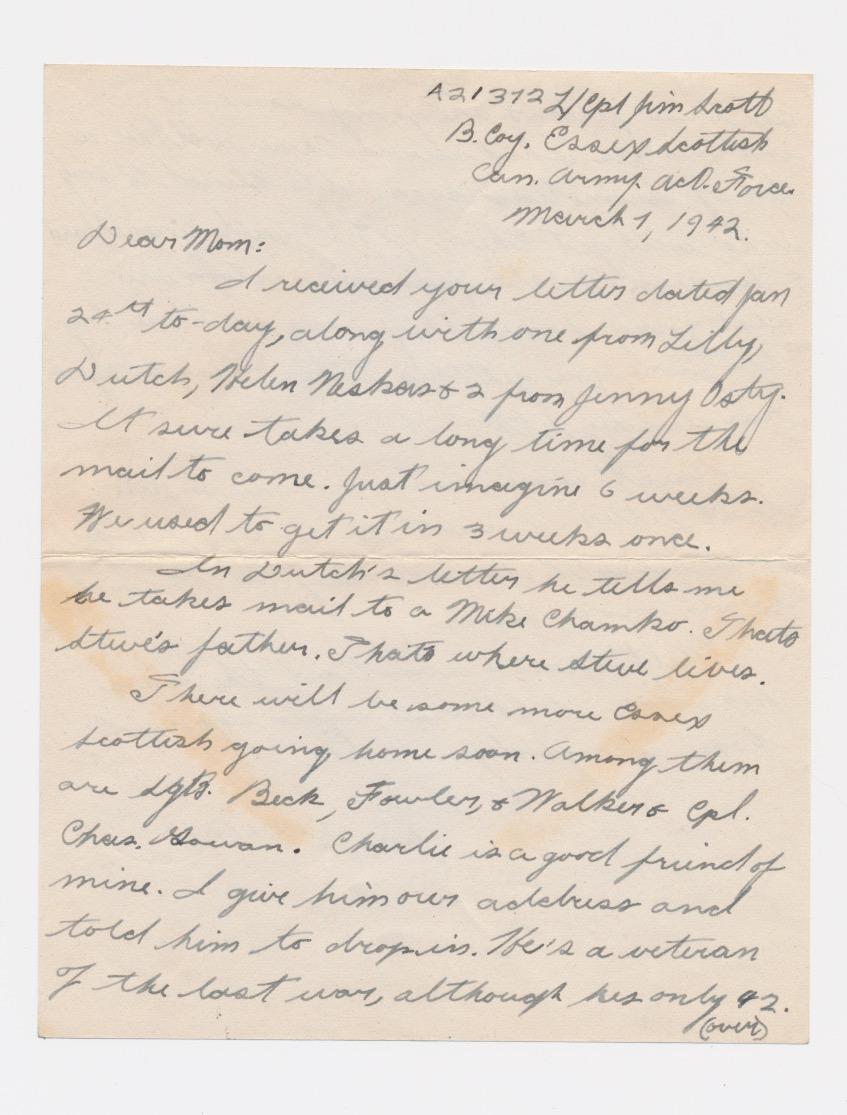 A21312 L/Cpl Jim Scott
B. Coy. Essex Scottish
Can. Army. Act. Force.
March 1, 1942.
Dear Mom:
I received your letter dated Jan
24th to-day, along with one from Lilly,
Dutch, Helen & 2 from Jenny
It sure takes a long time for the
mail to come. Just imagine 6 weeks.
We used to get it in 3 weeks once.
In Dutch's letter he tells me
he takes mail to a Mike Chamko. Thats
Steve's father. Thats where Steve lives.
There will be some more Essex
Scottish going home soon. Among them
are Sgts. Beck, Fowler, & Walker & Cpl.
Chas. Gowan. Charlie is a good friend of
mine. I give him our address and
told him to drop in. He's a veteran
of the last war, although hes only 42.
(over)